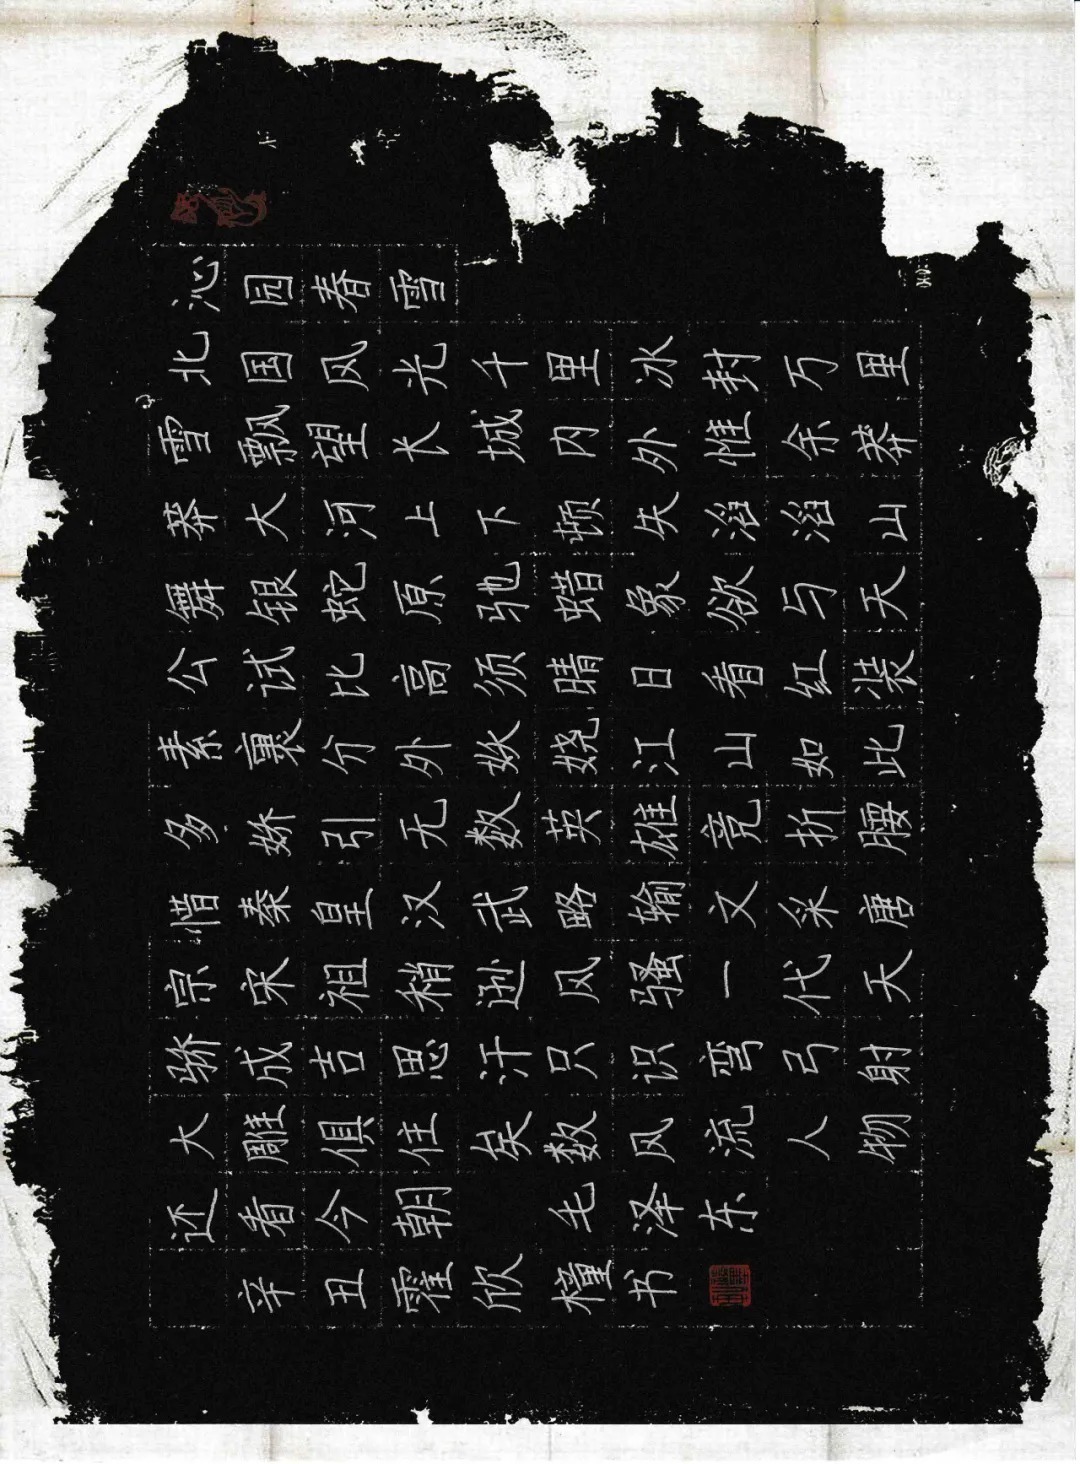 沁园春雪
北国风光千里冰封万里
雪飘望长城内外惟余莽
莽大河上下顿失滔滔山
舞银蛇原驰蜡象欲与天
公试比高须晴日看红装
素裹分外妖娆江山如此
多娇引无数英雄竞折腰
惜秦皇汉武略输文采唐
宗宋祖稍逊风骚一代天
骄成吉思汗只识弯弓射
大雕俱往矣数风流人物
还看今朝 毛泽东
辛丑霍欣橦书